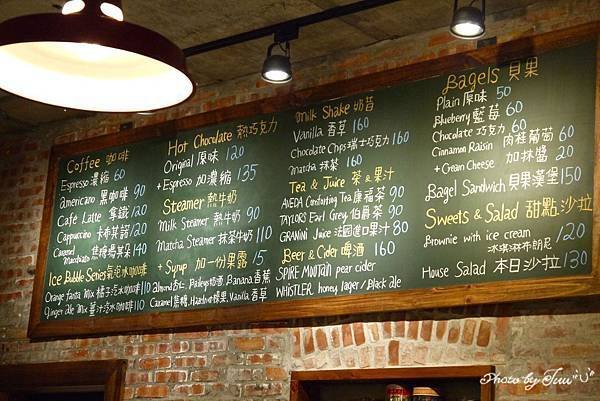 Coffee 咖啡
Espresso 濃縮 60
americano 黑咖啡 90
Cafe Latte 拿鐵 120
Cappuccino 卡布其諾 120
Caramel
Macchiato 焦糖瑪其朵 140
Ice Bubble Series 氣泡冰咖啡
Orange fanta Mix 橘子汽水咖啡 110
Ginger ale Mix 薑汁汽水咖啡 110
Hot Chocolate 熱巧克力
Original 原味 120
+ Espresso 加濃縮 135
Steamer 熱牛奶
Milk Steamer 熱牛奶 90
Matcha Steamer 抹茶牛奶 110
+ Syrup 加一份果露 15
almond 杏仁, Baileys 奶酒 Banana 香蕉
Caramel 焦糖, Hazelnut 榛果, Vanilla 香草
Milk Shake 奶昔
Vanilla 香草 160
Chocolate Chips 瑞士巧克力 160
Matcha 抹茶 160
Tea & Juice 茶&果汁
AVEDA Comforting Tea 康福茶 90
TAYLORS Earl Grey 伯爵茶 90
GRANINI Juice 法國進口果汁 80
Beer & Cider 啤酒 160
SPIRE MOUNTAIN pear cider
WHISTLER honey lager / Black ale
Bagels 貝果
Plain 原味 50
Blueberry 藍莓 60
Chocolate 巧克力 60
Cinnamon Raisin 肉桂葡萄 60
+ Cream Cheese 加抹醬 20
Bagel Sandwich 貝果漢堡 150
Sweets & Salad 甜點沙拉
Brownie with ice cream
冰淇淋布朗尼 120
House Salad 本日沙拉 130
Photo by